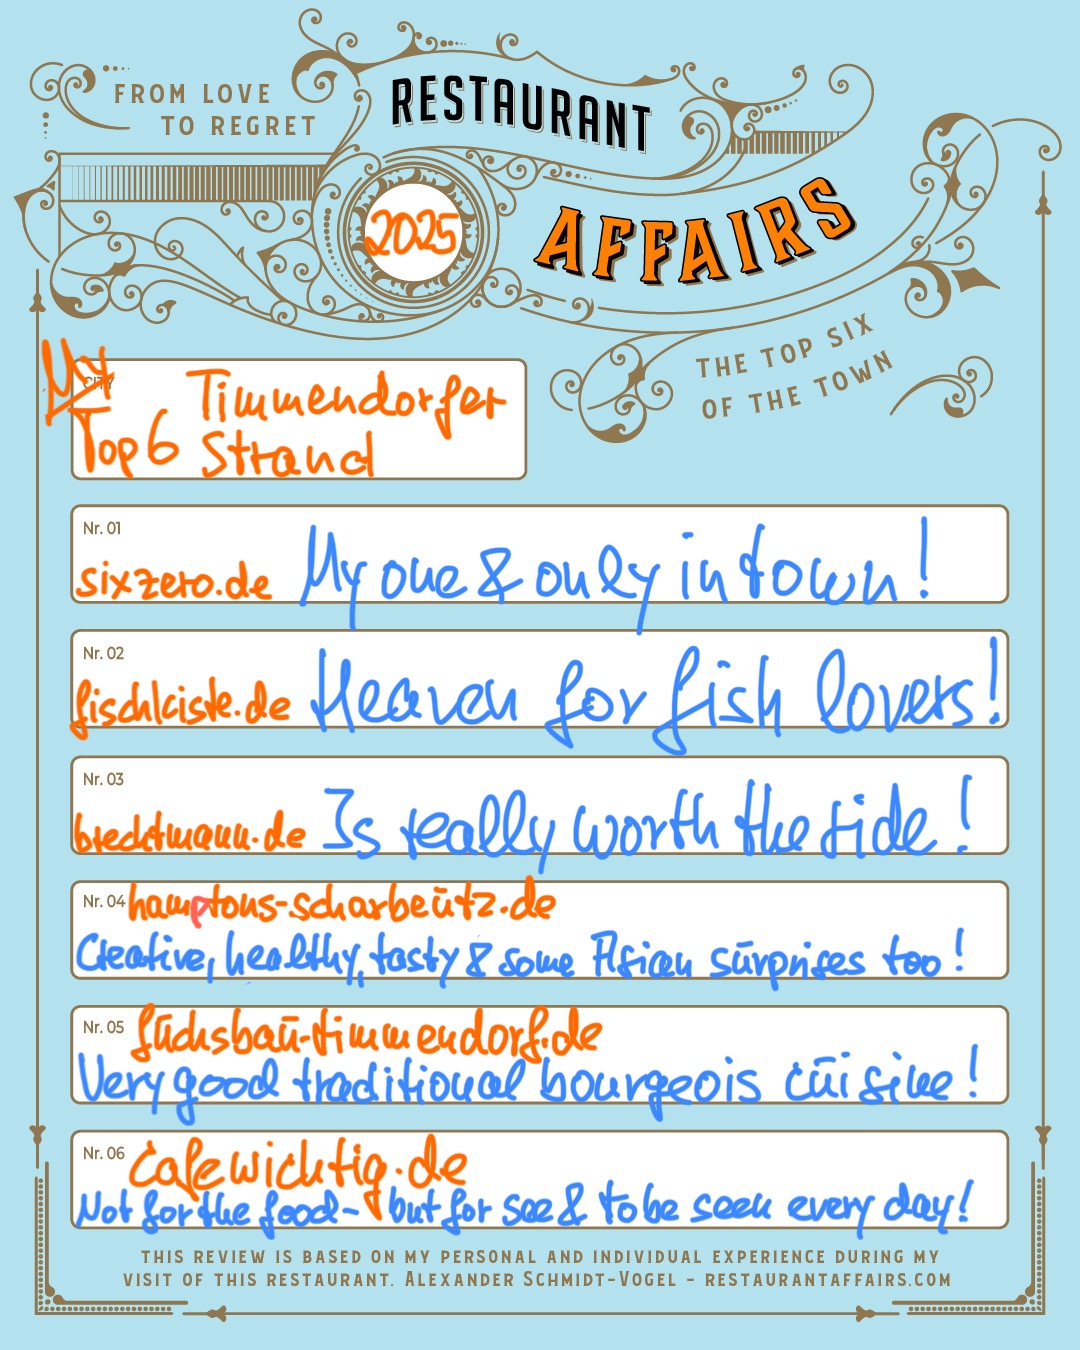 FROM LOVE
TO REGRET
RESTAURANT
AFFAIRS
2025
THE TOP SIX
OF THE TOWN
CITY
My
Top 6
Timmendorfer
Strand
Nr. 01
sixzero.de My one & only in town!
Nr. 02
fischkiste.de Heaven for fish lovers!
Nr. 03
brechtmann.de Is really worth the ride!
Nr. 04 hamptons-scharbeutz.de
Creative, healthy, tasty & some Asian surprises too!
Nr. 05 fuchsbau-timmendorf.de
Very good traditional bourgeois cuisine!
Nr. 06 cafewichtig.de
Not for the food - but for see & to be seen every day!
THIS REVIEW IS BASED ON MY PERSONAL AND INDIVIDUAL EXPERIENCE DURING MY
VISIT OF THIS RESTAURANT. ALEXANDER SCHMIDT-VOGEL - RESTAURANTAFFAIRS.COM